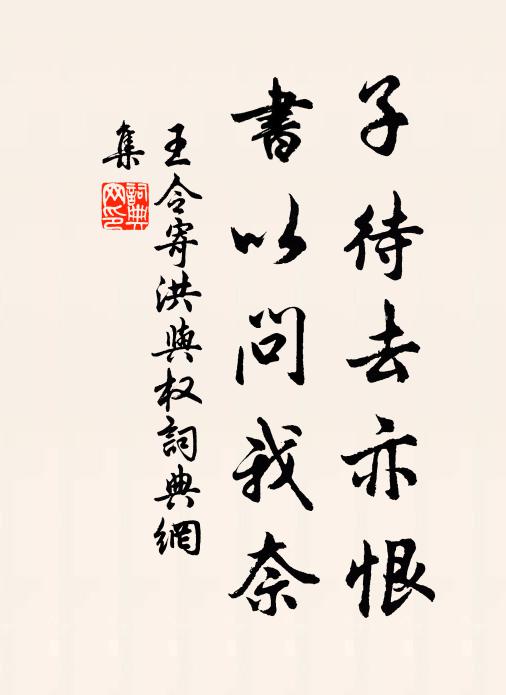 子待去亦恨
書以問我奈
王令寄洪與权詞典網
集
詞典
网印